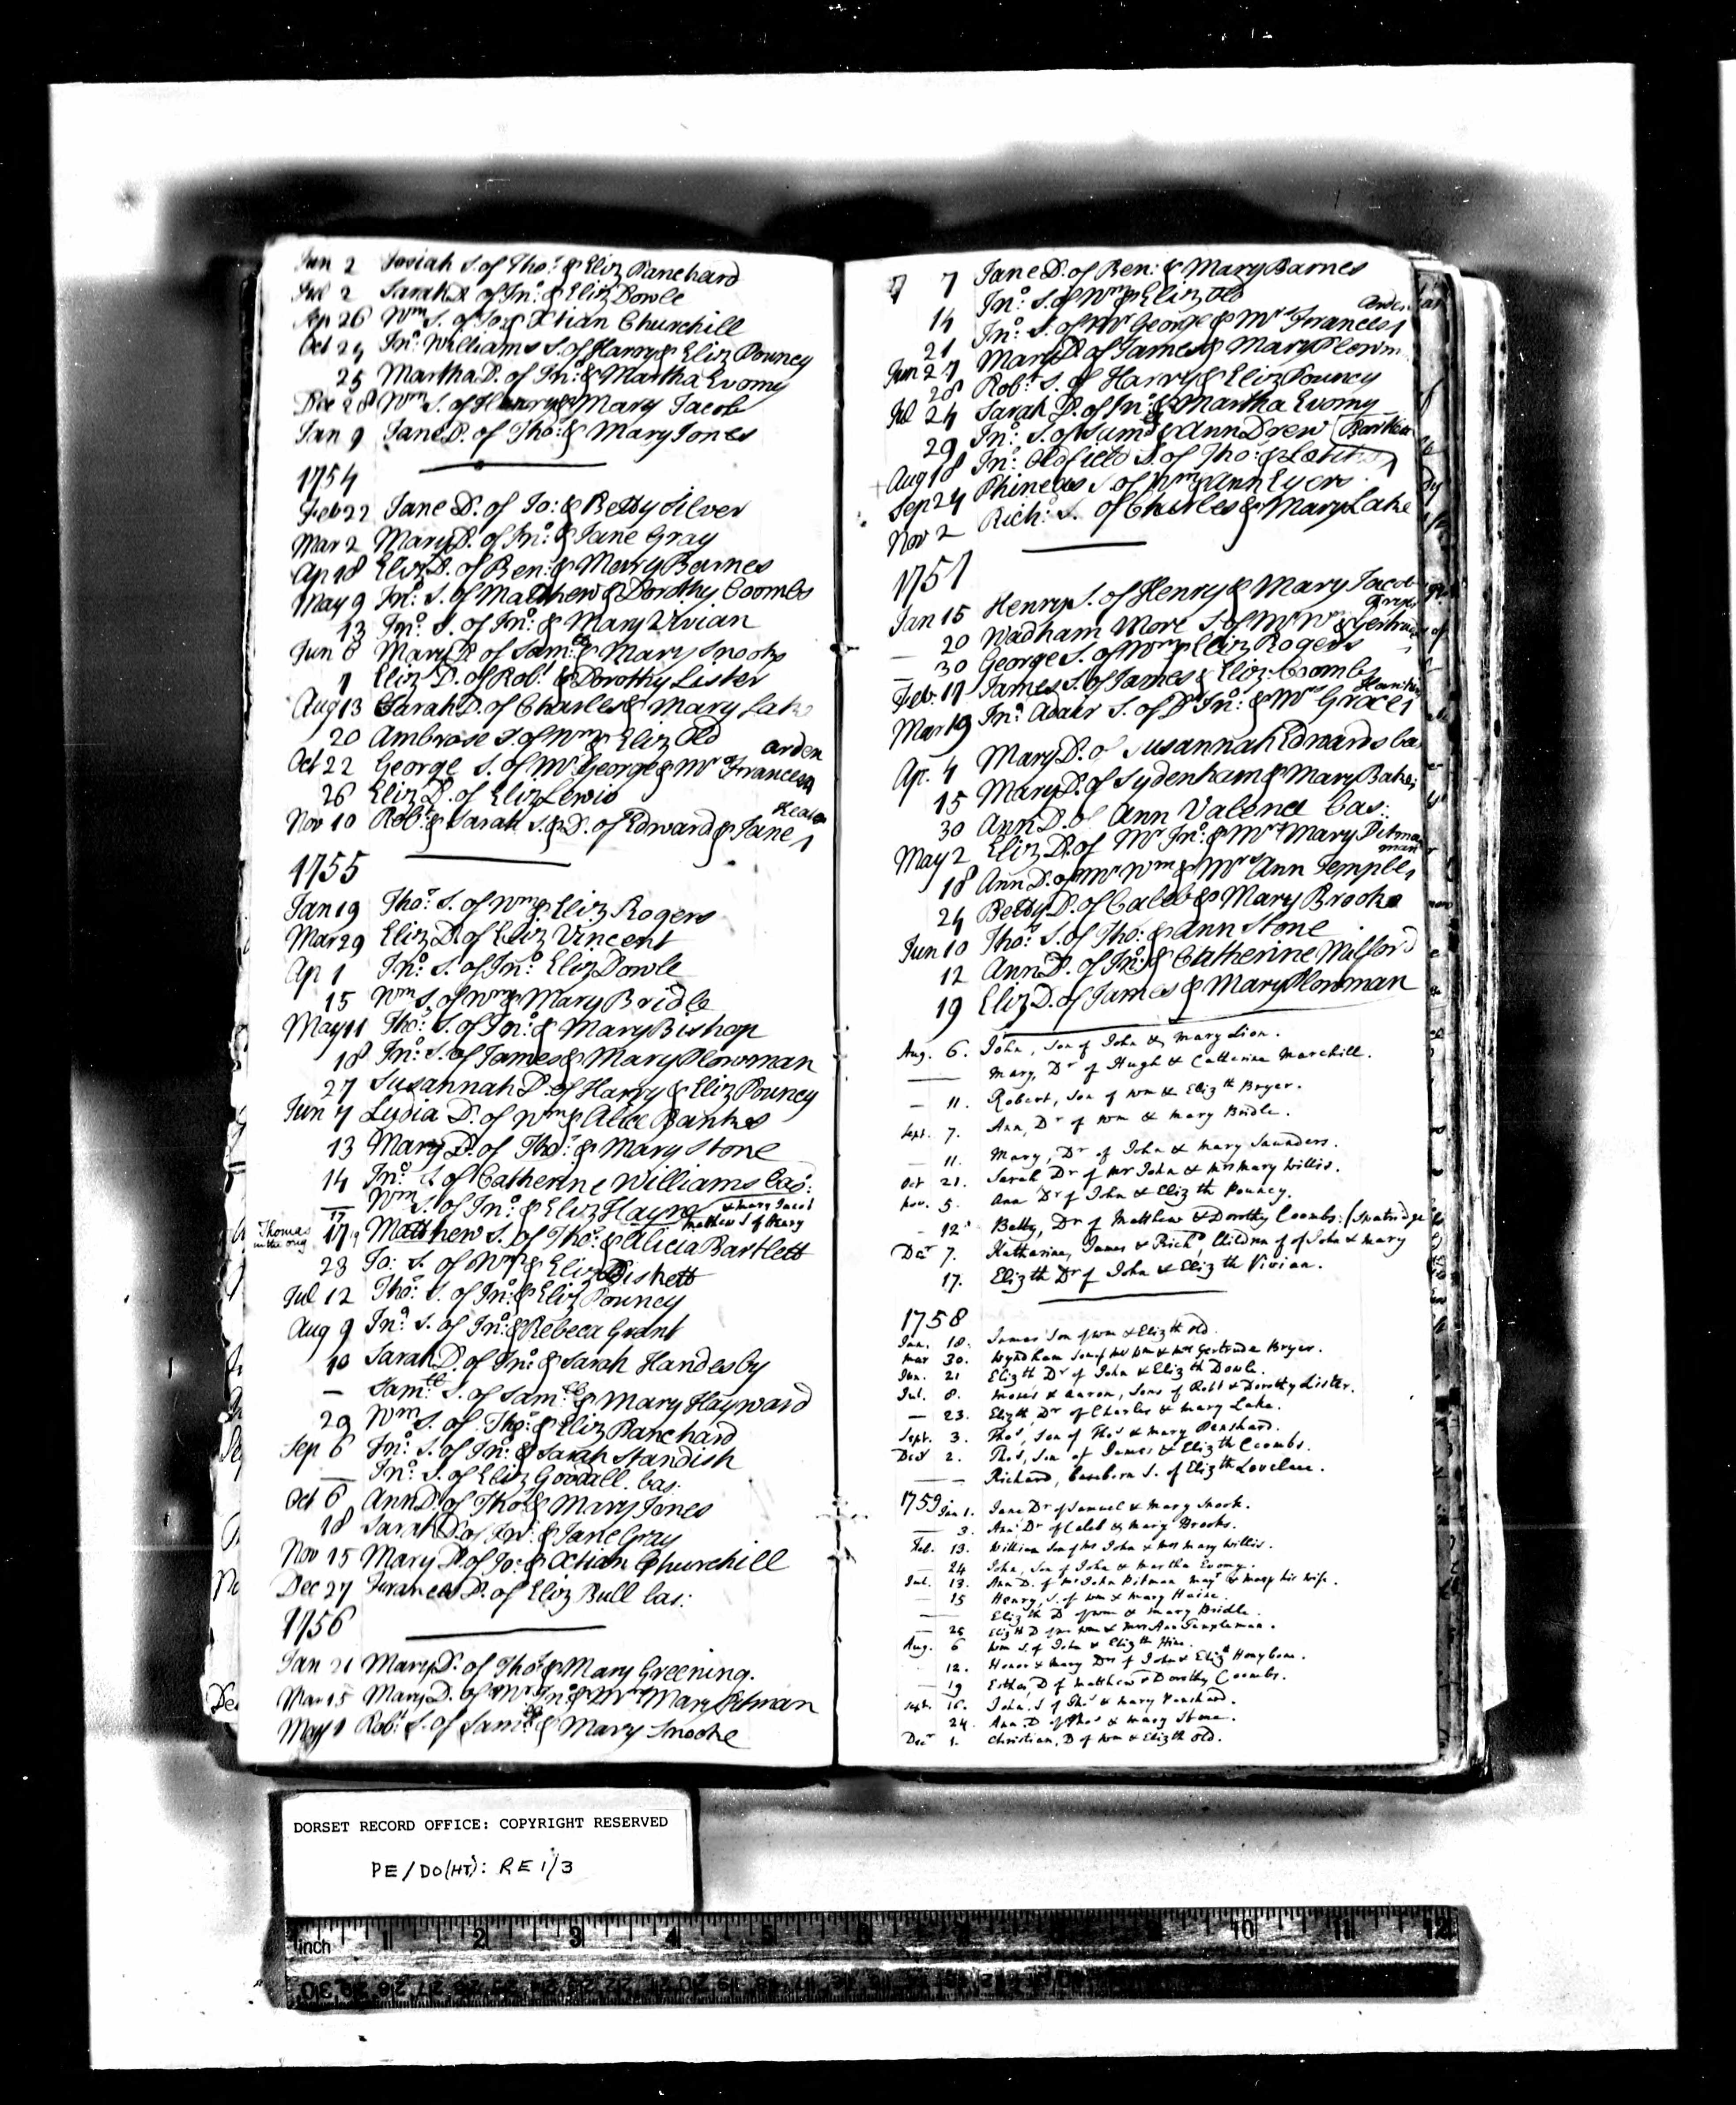 Jun 2 Josiah S. of Tho: & Eliz Panchard
Jul 2 Sarah D. of Jno: & Eliz Dowle
Sep 26 Wm S. of Jo: & Xtian Churchill
Oct 24 Jno: Williams S. of Harry & Eliz Pouncy
25 Martha D. of Jno: & Martha Evomy
Dec 28 Wm S. of Henry & Mary Jacob
Jan 9 Jane D. of Tho: & Mary Jones
1754
Feb 22 Jane D. of Jo: & Betty Silver
Mar 2 Mary D. of Jno: & Jane Gray
Ap 18 Eliz D. of Ben: & Mary Barnes
May 9 Jno: S. of Matthew & Dorothy Coombs
13 Jno: S. of Jno: & Mary Vivian
Jun 6 Mary D. of Sam: & Mary Snooke
7 Eliz D. of Robt & Dorothy Lister
Aug 13 Sarah D. of Charles & Mary Lake
20 Ambrose S. of Wm & Eliz Old
Oct 22 George S. of Mr George & Mrs Frances Arden
26 Eliz D. of Eliz Lewis
Nov 10 Robt & Sarah S. & D. of Edward & Jane
1755
Jan 19 Tho: S. of Wm & Eliz Rogers
Mar 29 Eliz D. of Eliz Vincent
Ap 1 Jno: S. of Jno: Eliz Dowle
15 Wm S. of Wm & Mary Bridle
May 11 Tho: S. of Jno: & Mary Bishop
18 Jno: S. of James & Mary Plowman
27 Susannah D. of Harry & Eliz Pouncy
Jun 7 Lydia D. of Wm & Alice Bankes
13 Mary D. of Tho: & Mary Stone
14 Jno: S. of Catherine Williams bas:
— Wm S. of Jno: & Eliz Hayne
& Mary Jacob
Mathew S of Henry
Thomas in the orig 17 Matthew S. of Tho: & Alicia Bartlett
23 Jo: S. of Wm & Eliz Biskett
Jul 12 Tho: S. of Jno: & Eliz Pouncy
Aug 9 Jno: S. of Jno: & Rebeca Grant
10 Sarah D. of Jno: & Sarah Handesby
— Samll S. of Samll & Mary Hayward
29 Wm S. of Tho: & Eliz Panchard
Sep 6 Jno: S. of Jno: & Sarah Standish
— Jno: S. of Eliz Goodall. bas:
Oct 6 Ann D. of Tho: & Mary Jones
18 Sarah D. of Jno: & Jane Gray
Nov 15 Mary D. of Jo: & Xtian Churchill
Dec 27 Frances D. of Eliz Bull bas:
1756
Jan 21 Mary D. of Tho: & Mary Greening.
Mar 15 Mary D. of Mr Jno: & Mrs Mary Pitman
May 1 Robt S. of Samll & Mary Snooke
7 Jane D. of Ben: & Mary Barnes
Jno: S. of Wm & Eliz Old
14 Jno: S. of Mr George & Mrs Frances Arden
21 Mary D. of James & Mary Plowm
Jun 27 Robt S. of Harry & Eliz Pouncy
28 Sarah D. of Jno: & Martha Evomy
Jul 24 Jno: S. of Samll & Ann Drew
29 Jno: Oldfield S. of Tho: & Letitia
Aug 18 Phineas S. of Wm & Ann Eyers
Sep 24 Rich: S. of Charles & Mary Lake
Nov 2
1757
Jan 15 Henry S. of Henry & Mary Jacob
20 Wadham More S. of Mr Wm & Gertrude
— 30 George S. of Wm & Eliz Rogers
Feb. 17 James S. of James & Eliz Coombs
Mar 19 Jno: Adair S. of Dr Jno: & Mrs Grace
Ap. 4 Mary D. of Susannah Edwards ba
15 Mary D. of Sydenham & Mary Baker
30 Ann D. of Ann Valence bas:
May 2 Eliz D. of Mr Jno: & Mrs Mary Pitman
18 Ann D. of Mr Wm & Mrs Ann Temple man
24 Betty D. of Caleb & Mary Brooks
Jun 10 Tho: S. of Tho: & Ann Stone
12 Ann D. of Jno: & Catherine Milford
19 Eliz D. of James & Mary Plowman
Aug. 6. John, Son of John & Mary Lion.
— Mary, Dr of Hugh & Catherine Marchill.
— 11. Robert, Son of Wm & Elizth Bryer.
Sept. 7. Ann, Dr of Wm & Mary Bridle.
— 11. Mary, Dr of John & Mary Saunders.
Oct 21. Sarah Dr of Mr John & Mrs Mary Willis.
Nov. 5. Ann Dr of John & Elizth Pouncy.
— 12 Betty, Dr of Matthew & Dorothy Coombs.
Decr 7. Katharine, James & Richd, Children of of John & Mary
17. Elizth Dr of John & Elizth Vivian.
1758
Jan. 18. James Son of Wm & Elizth Old.
Mar 30. Wyndham Son of Mr Wm & Mrs Gertrude Bryer.
Jun. 21 Elizth Dr of John & Elizth Dowle.
Jul. 8. Moses & Aaron, Sons of Robt & Dorothy Lister.
— 23. Elizth Dr of Charles & Mary Lake.
Sept. 3. Thos, Son of Thos & Mary Penshard.
Decr 2. Thos, Son of James & Elizth Coombs.
— Richard, baseborn S. of Elizth Lovelace.
1759 Jan 1. Jane Dr of Samuel & Mary Snook.
— 3. Ann Dr of Caleb & Mary Brooks.
Feb. 13. William Son of Mr John & Mrs Mary Willis.
— 24 John, Son of John & Martha Evomy.
Jul. 13. Ann D. of Mr John Pitman Mayr & Mary his wife.
15 Henry, S. of Wm & Mary Haine.
— Elizth D of Wm & Mary Bridle.
— 25 Elizth D of Mr Wm & Mrs Ann Templeman.
Aug. 6 Wm S. of John & Elizth Hine.
12. Honor & Mary Drs of John & Elizth Honybone.
— 19 Esther, D of Matthew & Dorothy Coombs.
Sept. 16. John, S of Thos & Mary Penshard.
24. Ann. D of Thos & Mary Stone.
Decr 1. Christian, D of Wm & Elizth Old.
DORSET RECORD OFFICE: COPYRIGHT RESERVED
PE/DO(HT): RE 1/3
inch 1 2 3 4 5 6 7 8 9 10 11 12